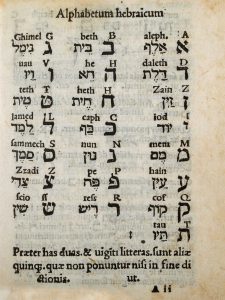 Alphabetum hebraicum
Ghimel G beth B aleph, A
א אלף ב בית ג גימל
uau V he H daleth D
ד דלת ה הא ו ויו
teth T heth H Zain Z
ז זין ח חית ט טית
lamed L caph C iod I
י יוד כ כף ל למד
sammech S nun N mem M
מ מם נ נון ס סמך
Zzadi Z pe P hain
ע עין פ פא צ
scio ss res R cof Q
ק קוף ר ריש ש שין
tau T
ת תו
Præter has duas. & uigiti litteras. sunt aliæ
quinq; quæ non ponuntur nisi in fine di
ctionis. ut.
A ii